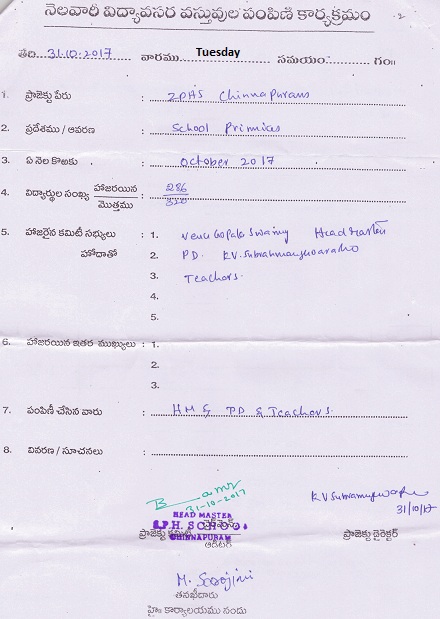 నెలవారీ విద్యావసర వస్తువుల పంపిణి కార్యక్రమం - 2
తేది 31-10-2017 వారము Tuesday సమయం: గం॥
1. ప్రాజెక్టు పేరు : ZPHS Chinnapuram
2. ప్రదేశము / ఆవరణ : School Primices
3. ఏ నెల కొఱకు : October 2017
4. విద్యార్థుల సంఖ్య హాజరయిన / మొత్తము : 286 / 320
5. హాజరైన కమిటీ సభ్యులు : 1. Venu Gopala Swamy Head Master
హోదాతో 2. PD. K.V. Subrahmanyswararao
3. Teachers.
4.
5.
6. హాజరయిన ఇతర ముఖ్యులు : 1.
2.
3.
7. పంపిణీ చేసిన వారు : HM & PD & Teachers.
8. వివరణ / సూచనలు :
31-10-2017
HEAD MASTER
Z.P.H. SCHOOL
CHINNAPURAM
31/10/17
ప్రాజెక్టు కమిటీ ప్రాజెక్టు డైరెక్టర్
ఆడిటర్
M. Sarojini
తనఖీదారు
హై: కార్యాలయము నందు